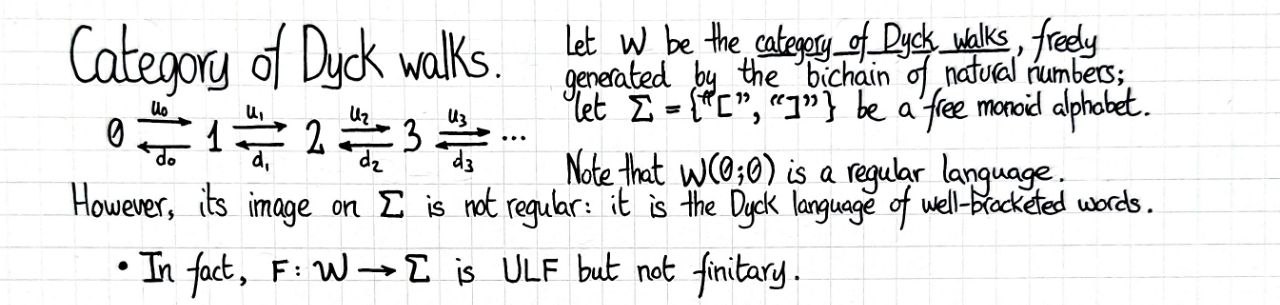 Category of Dyck walks.
0 u₀ d₀ 1 u₁ d₁ 2 u₂ d₂ 3 u₃ d₃ ...
Let W be the category of Dyck walks, freely
generated by the bichain of natural numbers;
let Σ = {“[”, “]”} be a free monoid alphabet.
Note that W(0;0) is a regular language.
However, its image on Σ is not regular: it is the Dyck language of well-bracketed words.
• In fact, F: W → Σ is ULF but not finitary.